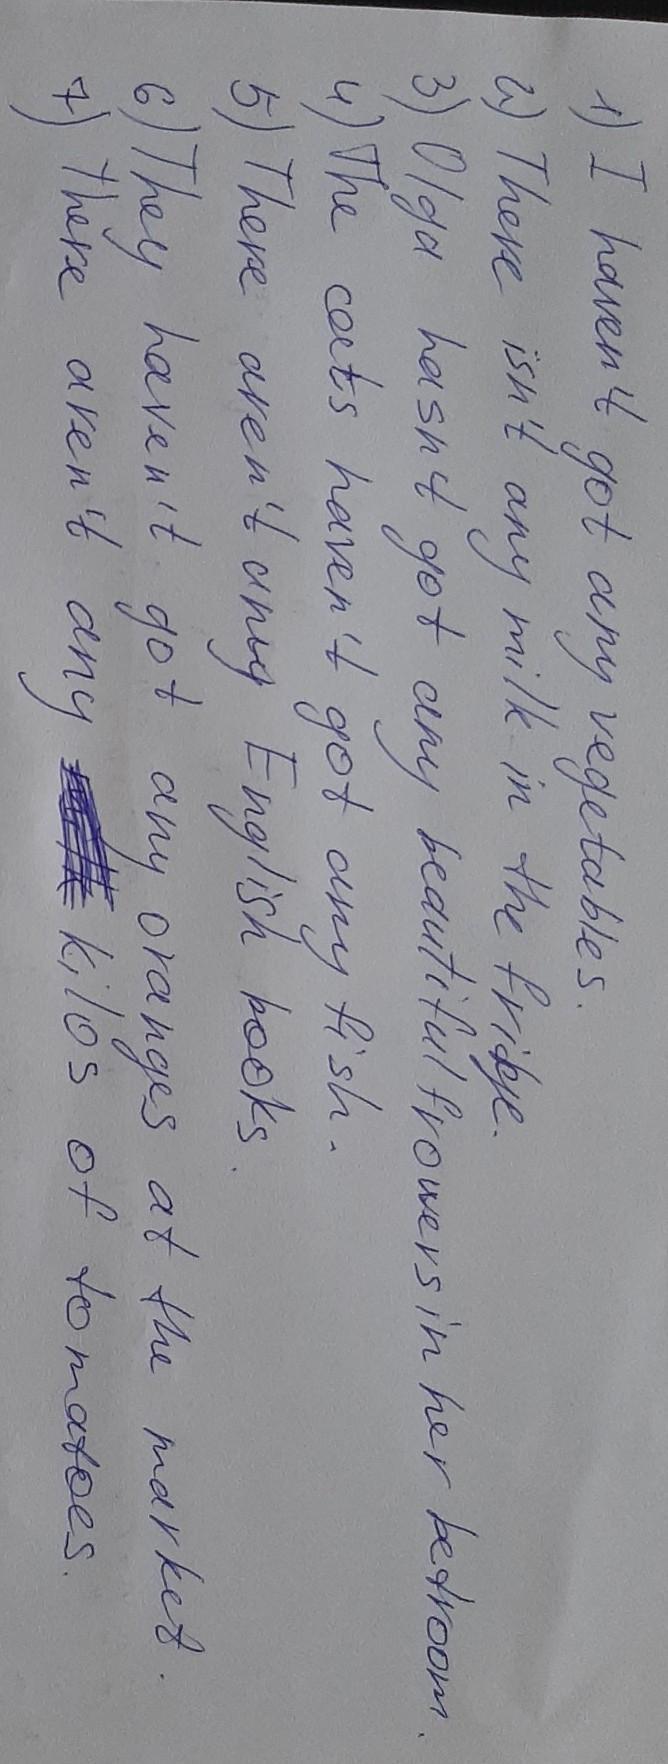 1) I haven't got any vegetables.
2) There isn't any milk in the fridge.
3) Olga hasn't got any beautiful frowers in her bedroom.
4) The cats haven't got any fish.
5) There aren't any English books.
6) They haven't got any oranges at the market.
7) There aren't any kilos of tomatoes.